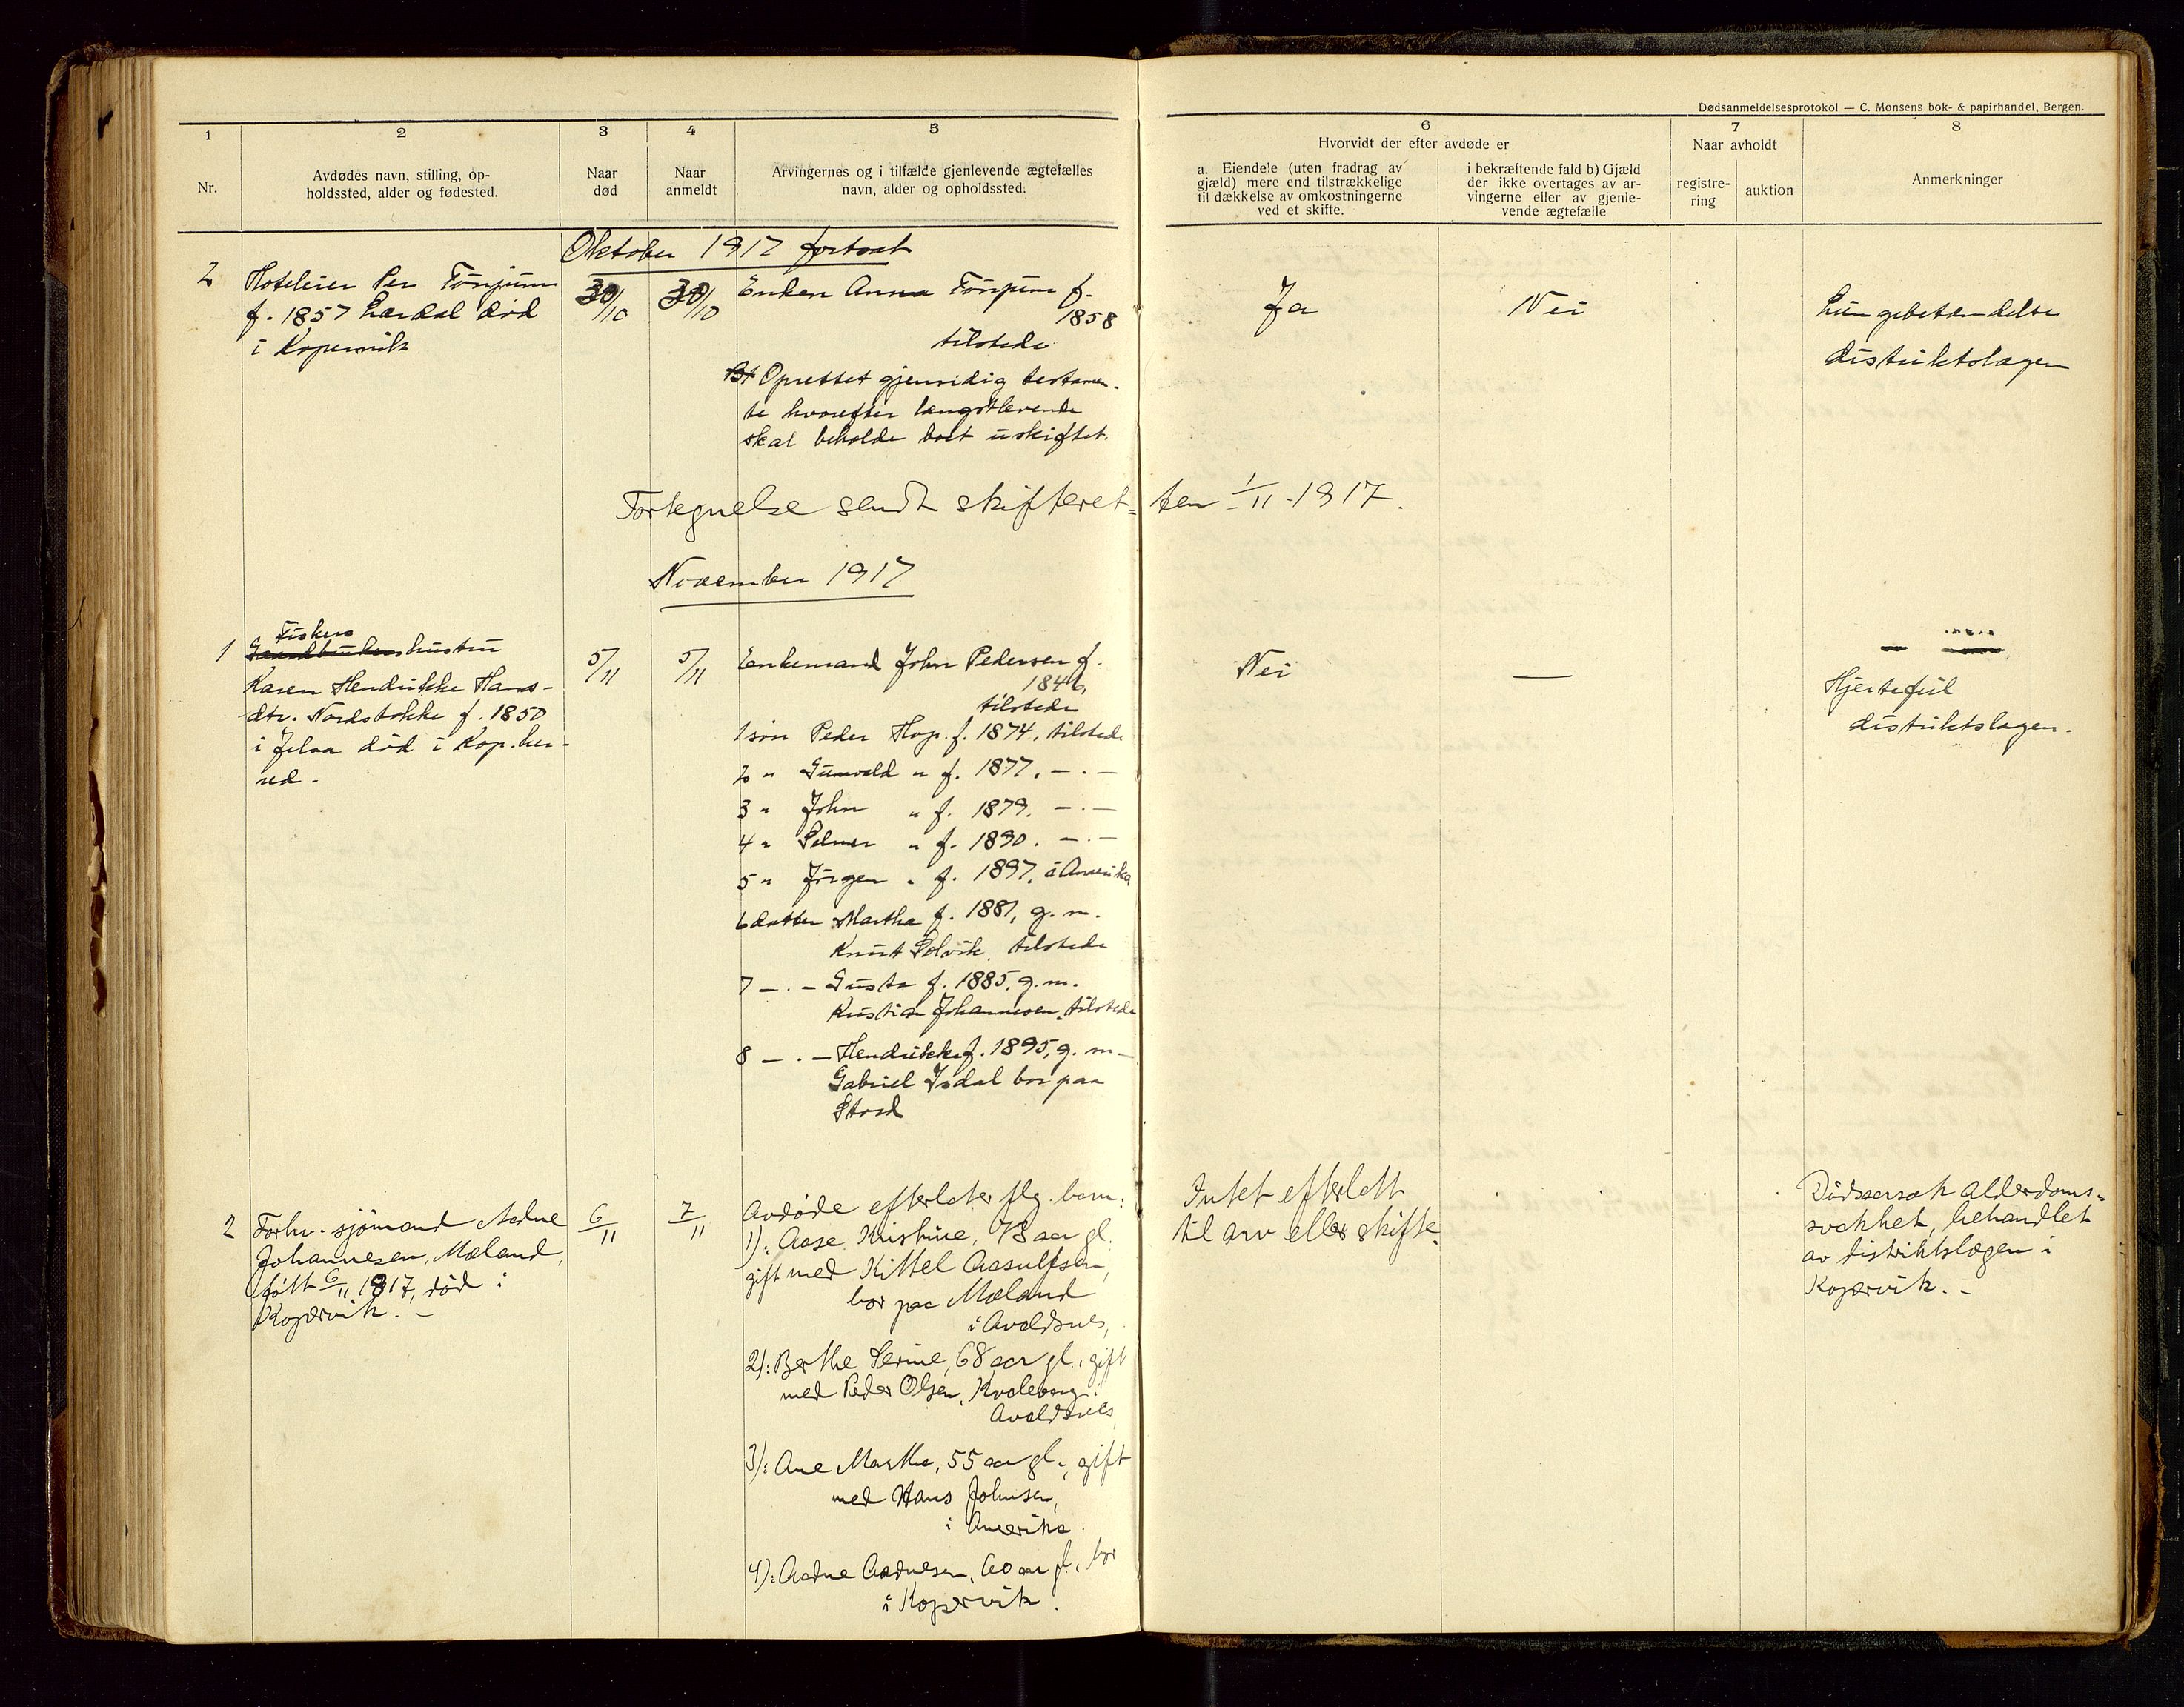 Dødsanmeldelsesprotokol — C. Monsens bok- & papirhandel, Bergen.
1 2 3 4 5 6 7 8
Nr.
Avdødes navn, stilling, op-
holdssted, alder og fødested.
Naar
død
Naar
anmeldt
Arvingernes og i tilfælde gjenlevende ægtefælles
navn, alder og opholdssted.
Hvorvidt der efter avdøde er
a. Eiendele (uten fradrag av
gjæld) mere end tilstrækkelige
til dækkelse av omkostningerne
ved et skifte.
i bekræftende fald b) Gjæld
der ikke overtages av ar-
vingerne eller av gjenle-
vende ægtefælle
Naar avholdt
registre-
ring
auktion
Anmerkninger
Oktober 1917 fortsat
2
Hoteleier Per Tönjum
f. 1857 Lærdal död
i Kopervik
30/10
30/10
Enken Anna Tönjum f.
1858
tilstede
Oprettet gjensidig testamen-
te hvorefter længstlevende
skal beholde boet uskiftet.
Ja
Nei
Lungebetændelse
distriktslægen
Fortegnelse sendt skifteret-
ten 1/11-1917.
November 1917
1
Fiskers
hustru
Karen Hendrikke Hans-
dtr. Nordstokke f. 1850
i Jelsa död i Kop.her-
red.
5/11
5/11
Enkemand John Pedersen f.
1846,
tilstede
1 sön Peder Hop. f. 1874, tilstede
2 " Gunvald " f. 1877. — . —
3 " John " f. 1879. — . —
4 " Selmer " f. 1890. — . —
5 " Jörgen " f. 1897. i Amerika
6 datter Martha f. 1881, g. m.
Knut Solvik, tilstede
7 — . — Gusta f. 1885, g. m.
Kristian Johannesen, tilstede
8 — . — Hendrikke f. 1895, g. m.
Gabriel Isdal bor paa
Stord
Nei
—
Hjertefeil
distriktslægen.
2
Forhv. sjömand Aadne
Johannesen, Mæland,
født 6/11 1817, død i
Kopervik. –
6/11
7/11
Avdøde efterlater flg. barn:
1): Aase Kristine, 73 aar gl.
gift med Kittel Aasulfsen,
bor paa Mæland
i Avaldsnes,
2): Berthe Serine, 68 aar gl., gift
med Peder Olsen, Kvalevaag i
Avaldsnes
3): Ane Martha, 55 aar gl., gift
med Hans Johnsen,
i Amerika.
4): Aadne Aadnesen, 60 aar gl., bor
i Kopervik.
Intet efterlatt
til arv eller skifte.
Dødsaarsak Alderdoms-
svakhet, behandlet
av distriktslægen i
Kopervik. –